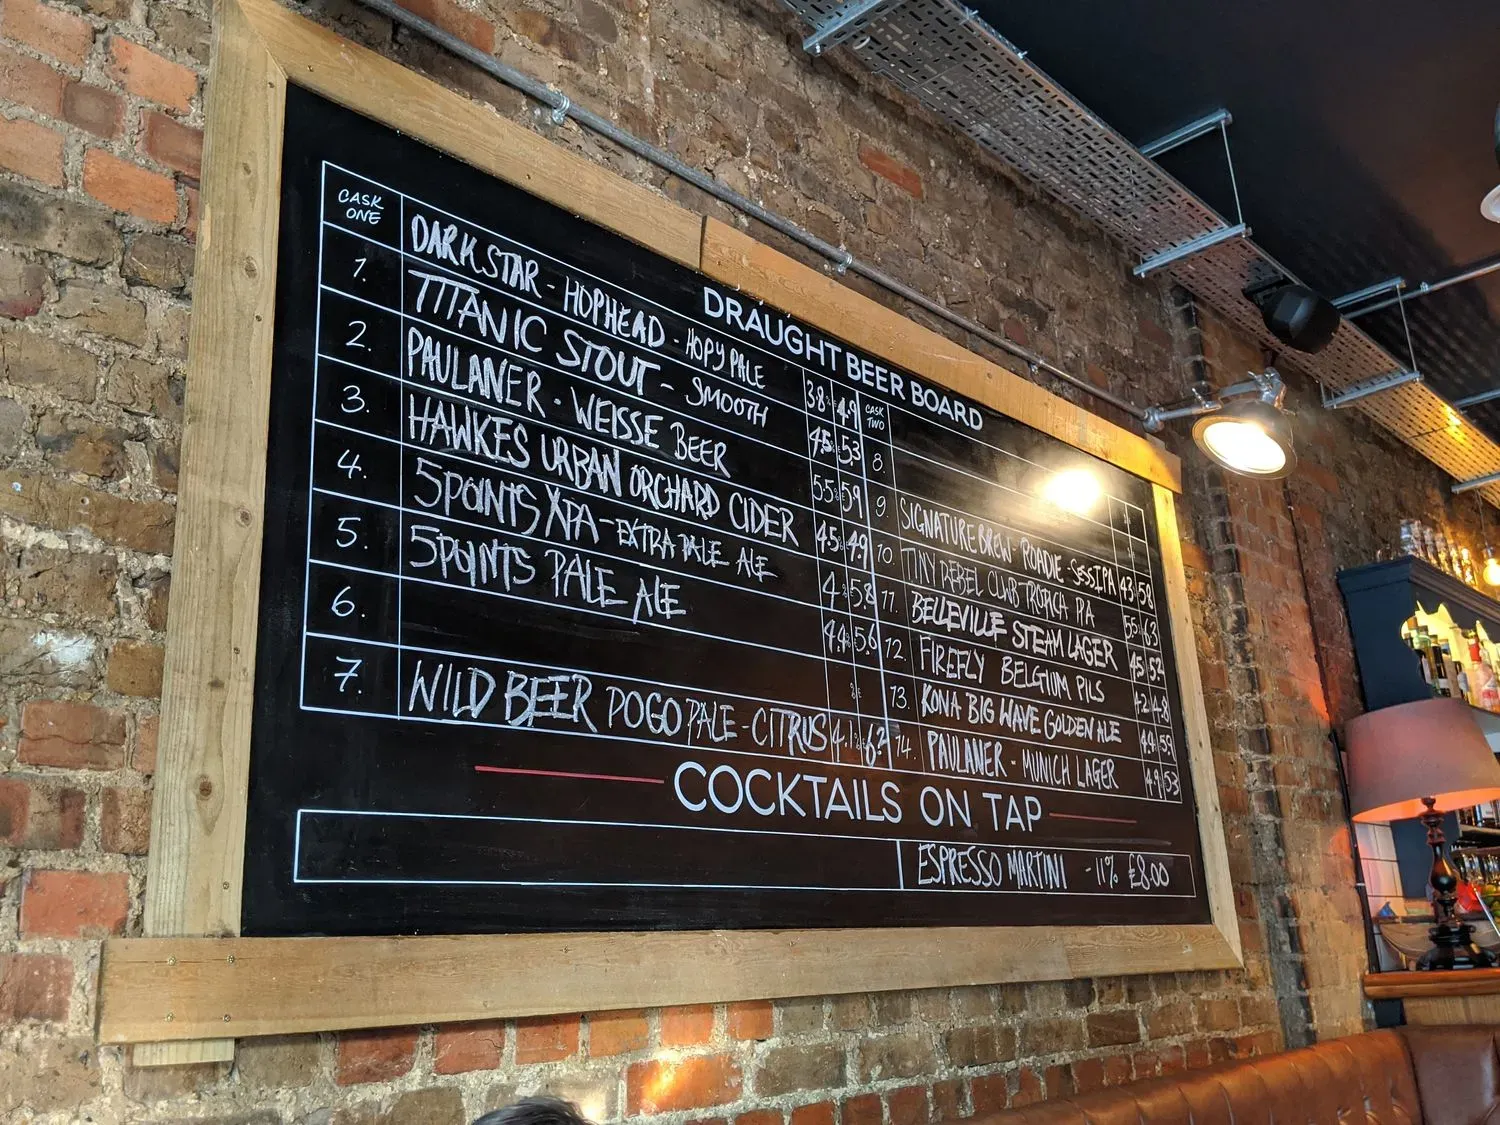 DRAUGHT BEER BOARD
CASK ONE DARK STAR - HOPHEAD - HOPY PALE 3.8% £4.9
1. TITANIC STOUT - SMOOTH 4.5% £5.3
2. PAULANER - WEISSE BEER 5.5% £5.9
3. HAWKES URBAN ORCHARD CIDER 4.5% £4.9
4. 5POINTS XPA - EXTRA PALE ALE 4% £5.8
5. 5POINTS PALE ALE 4.4% £5.6
6. % £
7. WILD BEER POGO PALE - CITRUS 4.1%
CASK TWO
8.
9. SIGNATURE BREW - ROADIE - SESS.IPA 4.3 5.8
10. TINY REBEL CLWB TROPICA IPA 5.5 6.3
11. BELLEVILLE STEAM LAGER 4.5 5.2
12. FIREFLY BELGIUM PILS 4.2 4.8
13. KONA BIG WAVE GOLDEN ALE 4.4 5.9
14. PAULANER - MUNICH LAGER 4.9 5.3
COCKTAILS ON TAP
ESPRESSO MARTINI - 11% £8.00